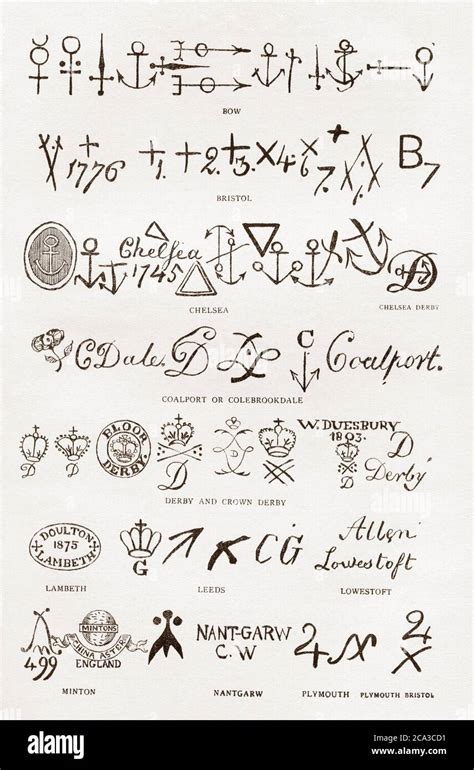 BOW
1776 +1. +2. +3. X4 6 7. B7
BRISTOL
Chelsea
1745
D
CHELSEA
CHELSEA DERBY
CDale. C Coalport.
COALPORT OR COLEBROOKDALE
BLOOR
DERBY
W. DUESBURY
1803.
D D D D
Derby
DERBY AND CROWN DERBY
DOULTON
1875
LAMBETH
G CG
Allen
Lowestoft
LAMBETH
LEEDS
LOWESTOFT
499
MINTONS
CHINA ASTER
ENGLAND
NANT-GARW
C.W
MINTON
NANTGARW
PLYMOUTH
PLYMOUTH BRISTOL
alamy
Image ID: 2CA3CD1
www.alamy.com